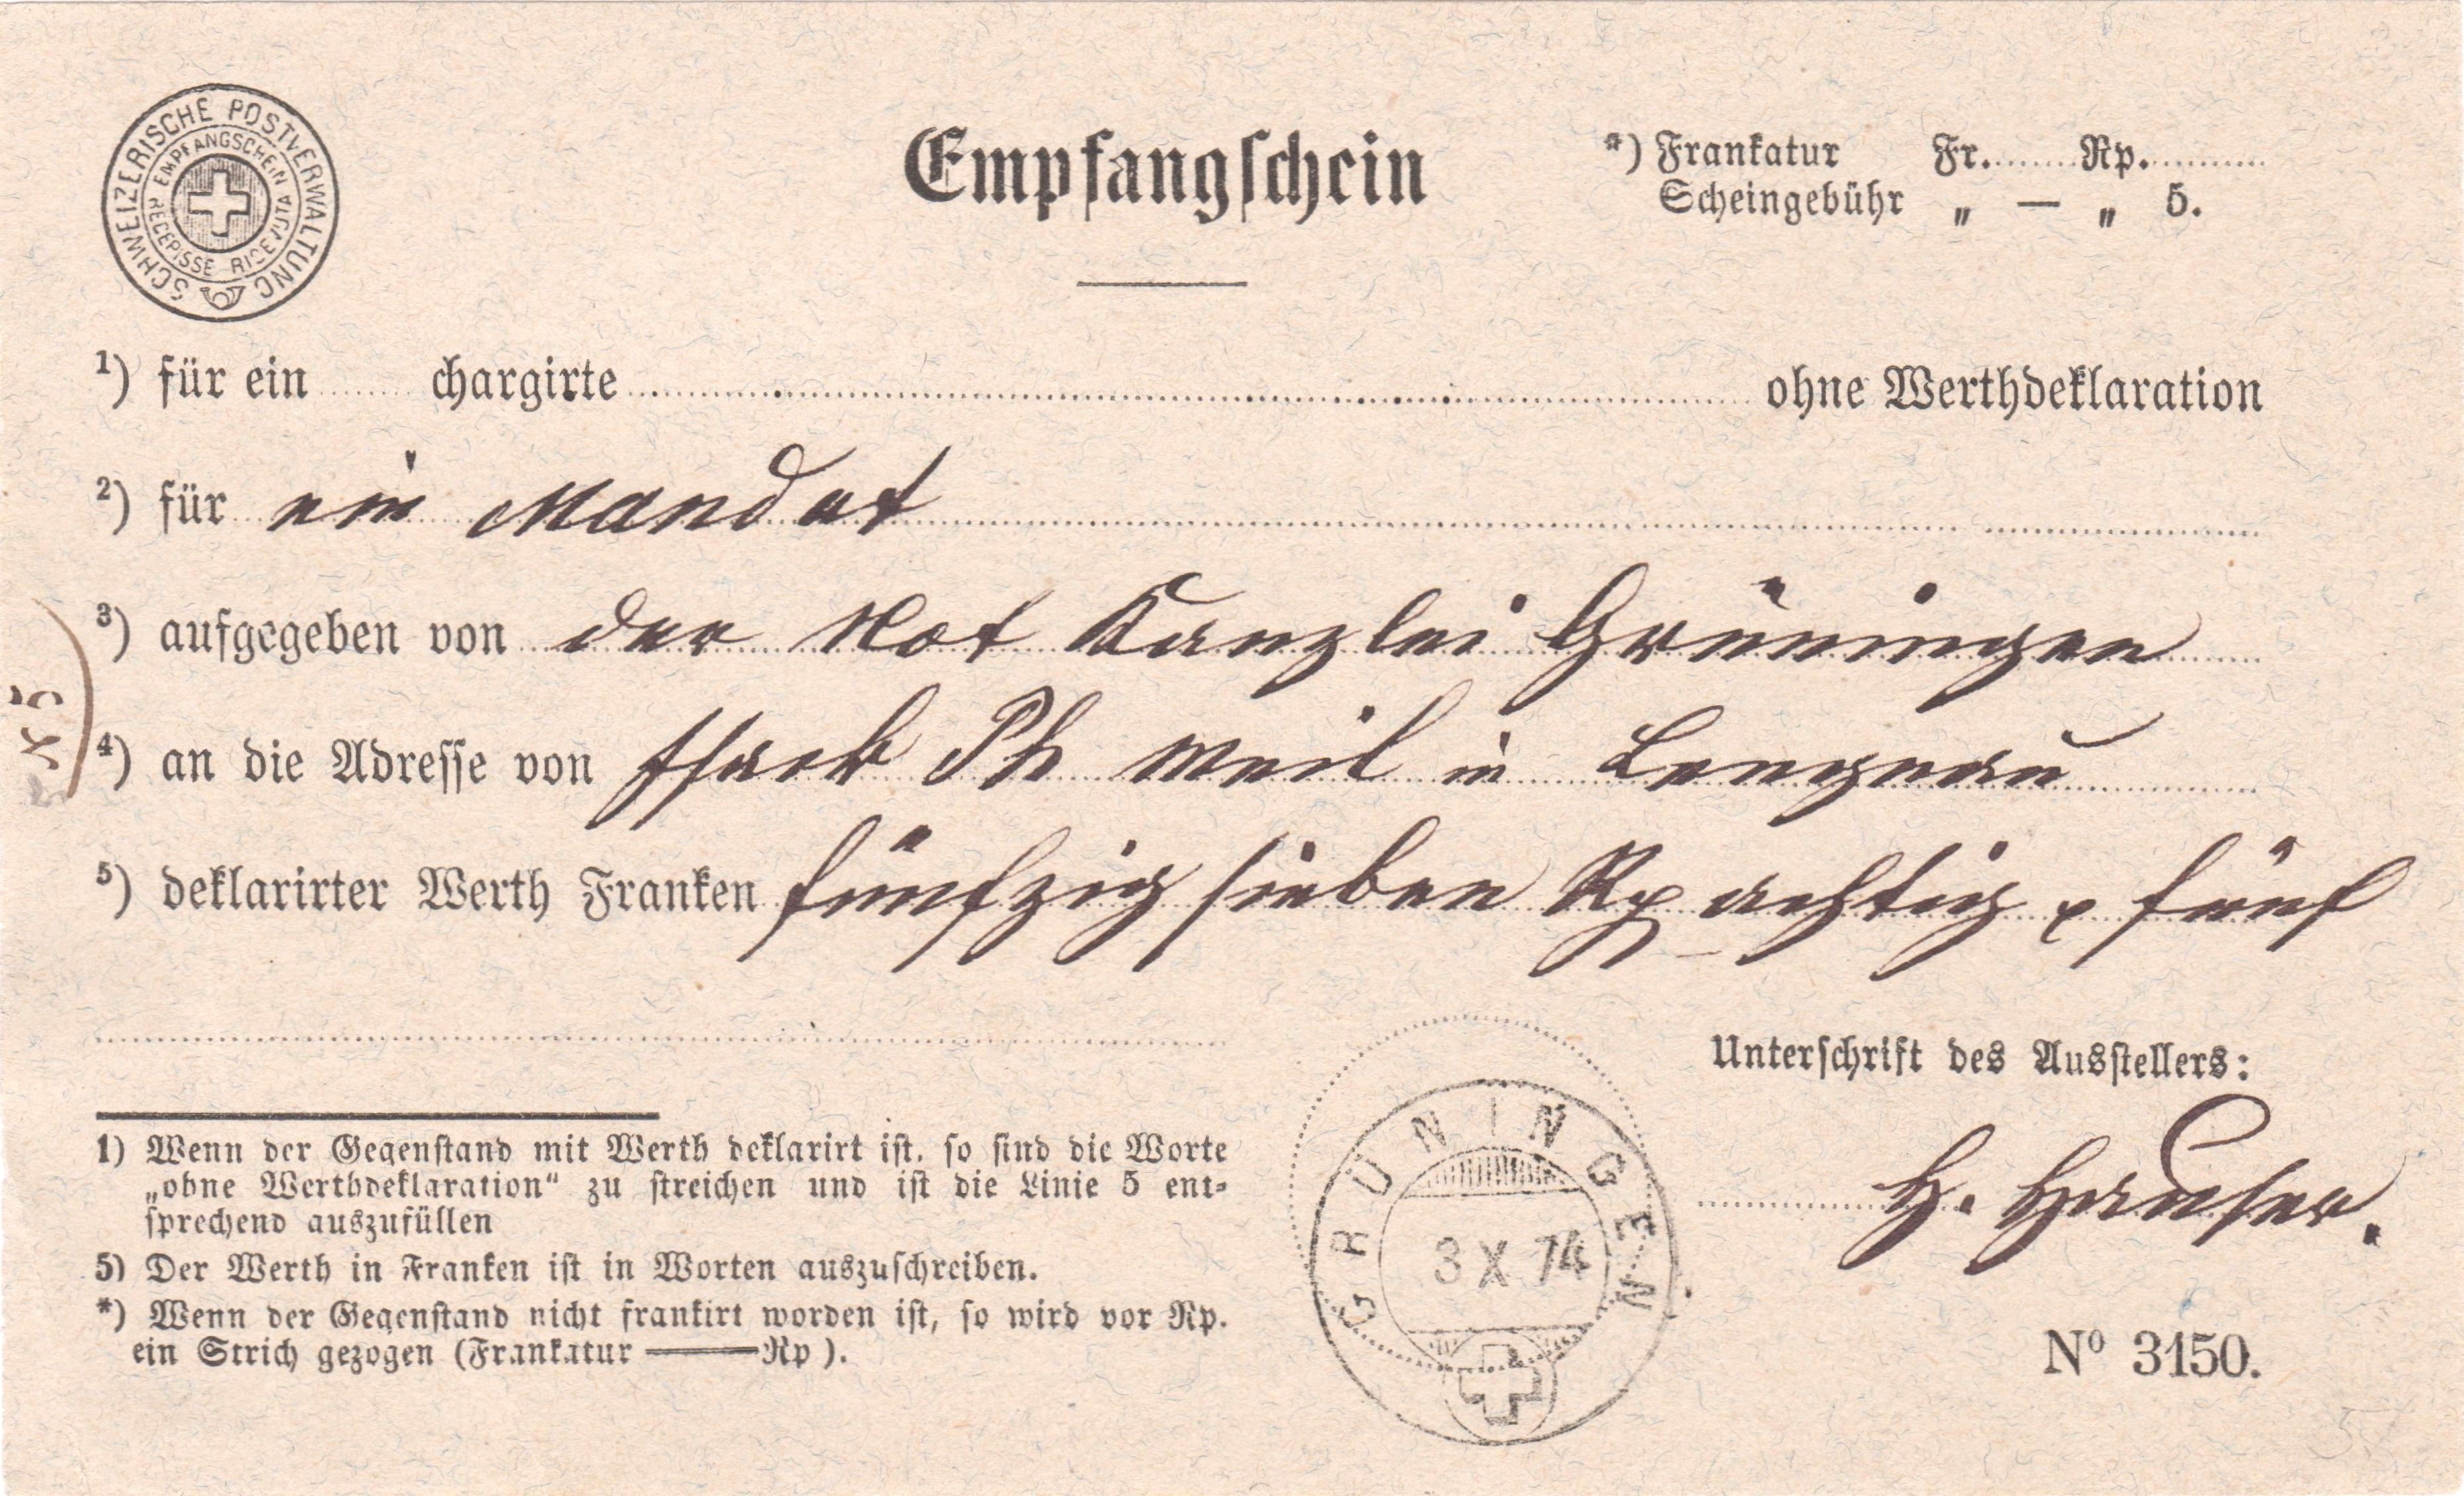 SCHWEIZERISCHE POSTVERWALTUNG
EMPFANGSCHEIN RICEVUTA RECEPISSE
Empfangschein
*) Frankatur Fr. Rp.
Scheingebühr „ — „ 5.
1) für ein chargirte ohne Werthdeklaration
2) für ein Mandat
3) aufgegeben von der Not Kanzlei Grüningen
4) an die Adresse von Ph Weil in Lengnau
5) deklarirter Werth Franken fünfzig sieben Rp achtzig & fünf
Unterschrift des Ausstellers:
H. Hauser.
1) Wenn der Gegenstand mit Werth deklarirt ist, so sind die Worte
„ohne Werthdeklaration“ zu streichen und ist die Linie 5 ent-
sprechend auszufüllen
5) Der Werth in Franken ist in Worten auszuschreiben.
*) Wenn der Gegenstand nicht frankirt worden ist, so wird vor Rp.
ein Strich gezogen (Frankatur ——— Rp).
GRÜNINGEN
3 X 74
No 3150.